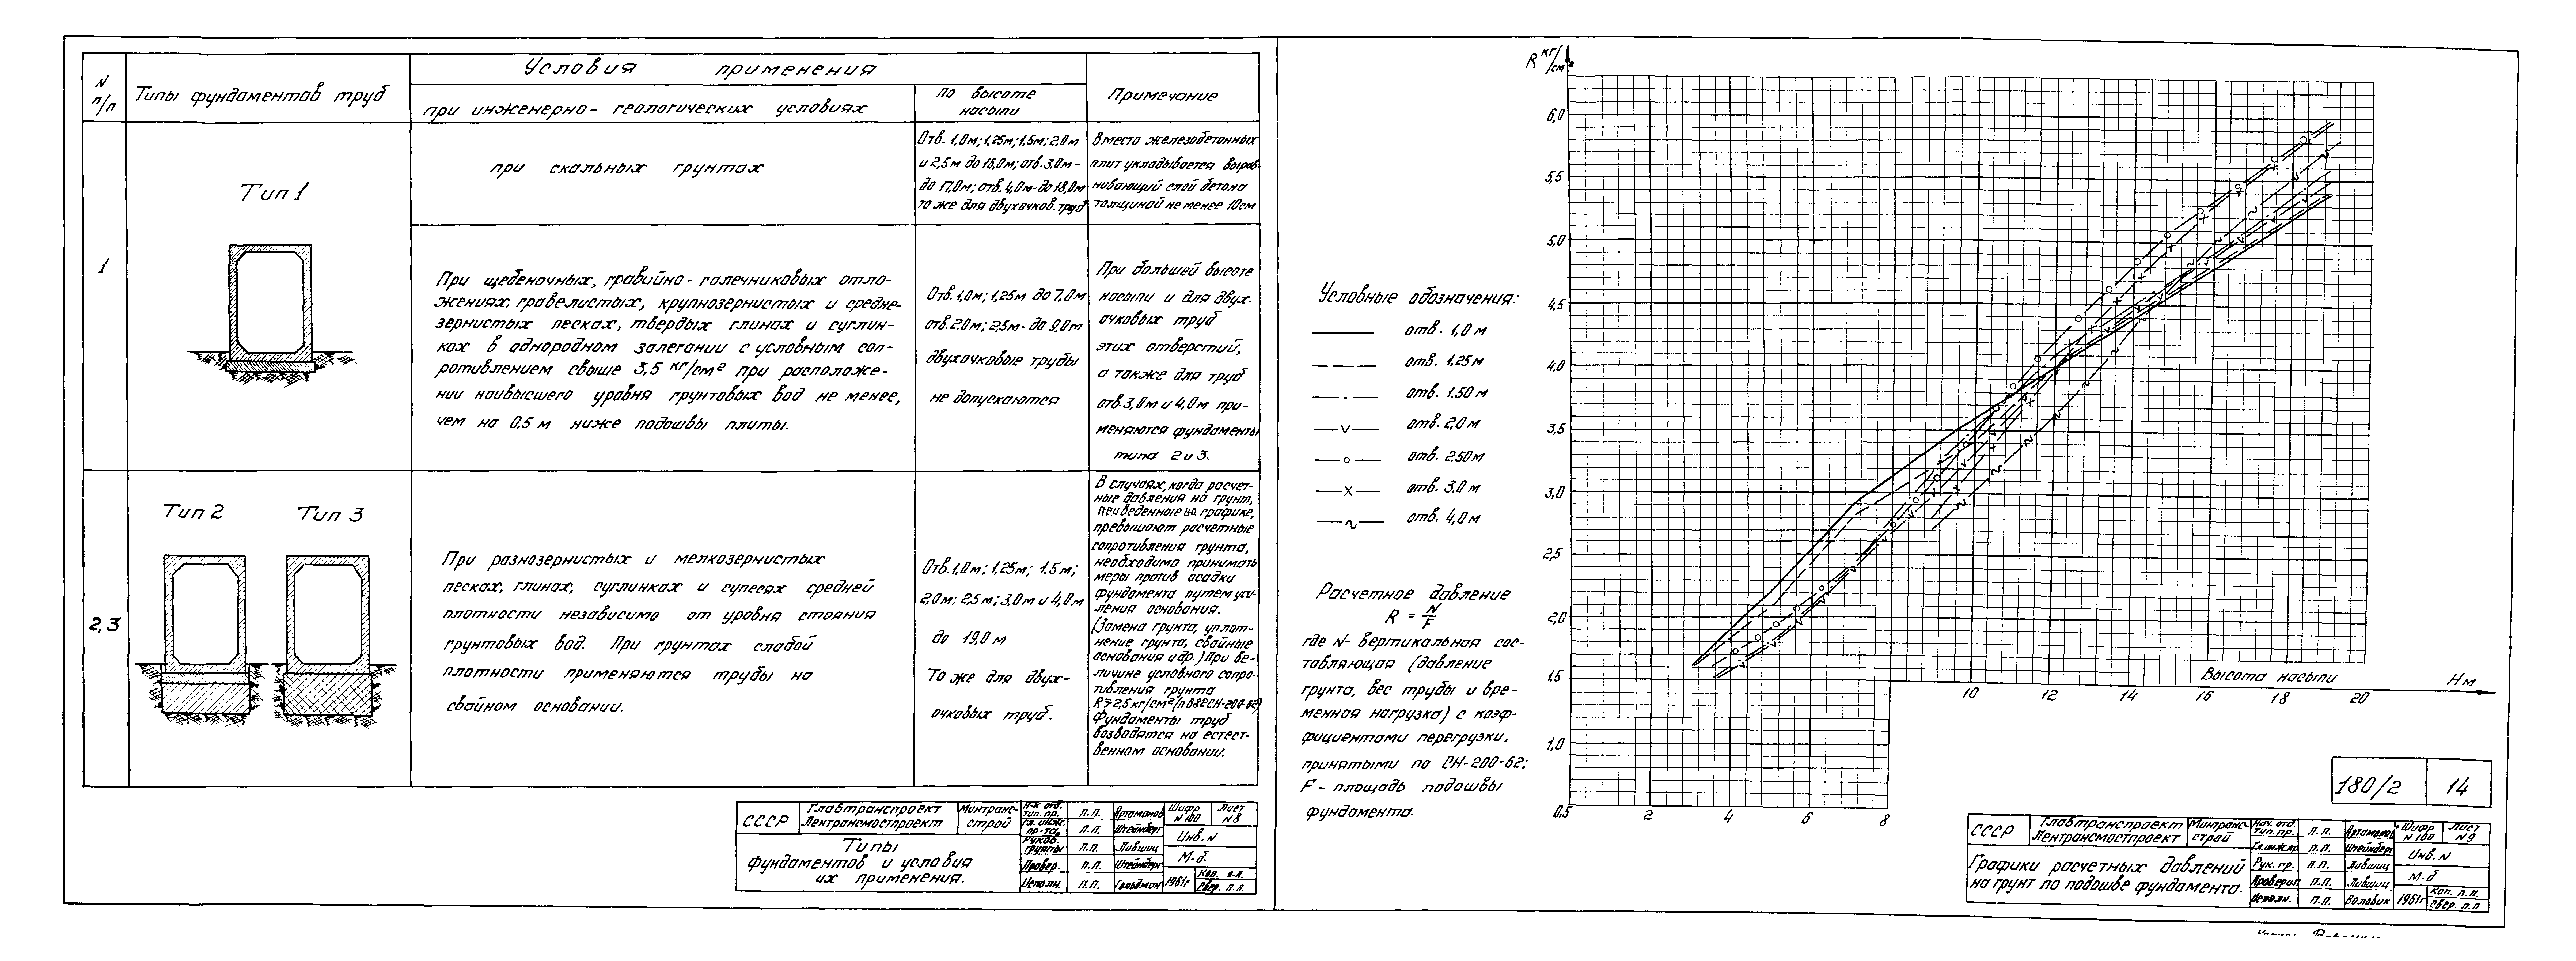 N п/п
Типы фундаментов труб
Условия применения
при инженерно-геологических условиях
по высоте
насыпи
Примечание
1
Тип 1
при скальных грунтах
Отв. 1,0м; 1,25м; 1,5м; 2,0м
и 2,5м до 18,0м; отв. 3,0м-
до 17,0м; отв. 4,0м-до 18,0м
то же для двухочков. труб
Вместо железобетонных
плит укладывается вырав-
нивающий слой бетона
толщиной не менее 10см
При щебеночных, гравийно-галечниковых отло-
жениях, гравелистых, крупнозернистых и средне-
зернистых песках, твердых глинах и суглин-
ках в однородном залегании с условным соп-
ротивлением свыше 3,5 кг/см² при расположе-
нии наивысшего уровня грунтовых вод не менее,
чем на 0,5 м ниже подошвы плиты.
Отв. 1,0м; 1,25м до 7,0м
отв. 2,0м; 2,5м- до 9,0м
двухочковые трубы
не допускаются
При большей высоте
насыпи и для двух-
очковых труб
этих отверстий,
а также для труб
отв. 3,0м и 4,0м при-
меняются фундаменты
типа 2 и 3.
2,3
Тип 2
Тип 3
При разнозернистых и мелкозернистых
песках, глинах, суглинках и супесях средней
плотности независимо от уровня стояния
грунтовых вод. При грунтах слабой
плотности применяются трубы на
свайном основании.
Отв. 1,0м; 1,25м; 1,5м;
2,0м; 2,5м; 3,0м и 4,0м
до 19,0 м
То же для двух-
очковых труб.
В случаях, когда расчет-
ные давления на грунт,
приведенные на графике,
превышают расчетные
сопротивления грунта,
необходимо принимать
меры против осадки
фундамента путем уси-
ления основания.
(Замена грунта, уплот-
нение грунта, свайные
основания и др.) При ве-
личине условного сопро-
тивления грунта
R≥2,5 кг/см² /п. 88 СН-200-62/
Фундаменты труб
возводятся на естест-
венном основании.
СССР
Главтранспроект
Лентрансмостпроект
Минтранс-
строй
Типы
фундаментов и условия
их применения.
Н-к отд. тип. пр. п.п. Артамонов
Гл. инж. пр-та п.п. Штейнберг
Руков. группы п.п. Лившиц
Провер. п.п. Штейнберг
Исполн. п.п. Гольдман
Шифр N 180
Лист N 8
Инв. N
М-б
1961г
Коп. п.п.
Свер. п.п.
R кг/см²
6,0
5,5
5,0
4,5
4,0
3,5
3,0
2,5
2,0
1,5
1,0
0,5
2
4
6
8
10
12
14
16
18
20
Высота насыпи
Н м
Условные обозначения:
отв. 1,0 м
отв. 1,25 м
отв. 1,50 м
отв. 2,0 м
отв. 2,50 м
отв. 3,0 м
отв. 4,0 м
Расчетное давление
R = N/F
где N- вертикальная сос-
тавляющая (давление
грунта, вес трубы и вре-
менная нагрузка) с коэф-
фициентами перегрузки,
принятыми по СН-200-62;
F- площадь подошвы
фундамента.
180/2
14
СССР
Главтранспроект
Лентрансмостпроект
Минтранс-
строй
Графики расчетных давлений
на грунт по подошве фундамента.
Нач. отд. тип. пр. п.п. Артамонов
Гл. инж. пр п.п. Штейнберг
Рук. гр. п.п. Лившиц
Проверил п.п. Лившиц
Исполн. п.п. Воловик
Шифр N 180
Лист N 9
Инв. N
М-б
1961г
Коп. п.п.
Свер. п.п